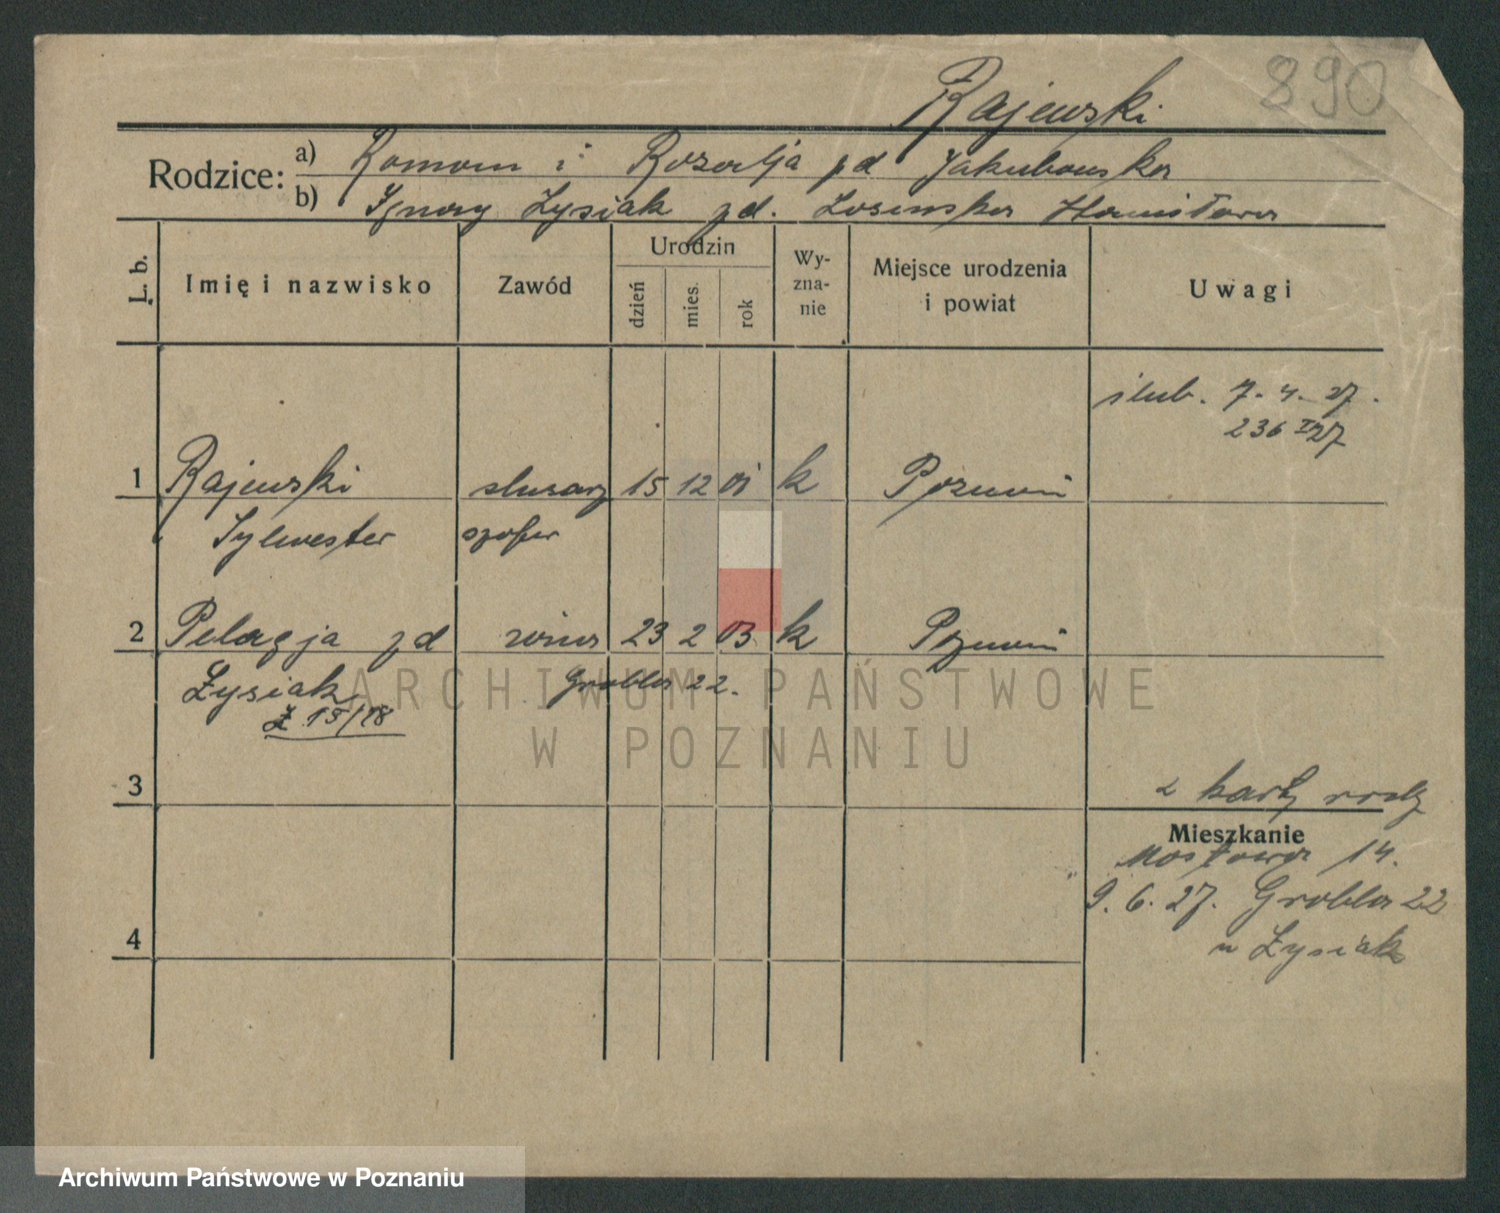 890
Rajewski
Rodzice: a) Roman i Rozalja zd Jakubowska
b) Ignacy Łysiak zd. Łosińska Stanisława
L. b.
Imię i nazwisko
Zawód
Urodzin
dzień
mies.
rok
Wy-
zna-
nie
Miejsce urodzenia
i powiat
Uwagi
ślub. 7. 4. 27.
236 I 27
1 Rajewski ślusarz 15 12 01 k Poznań
Sylwester szofer
2 Pelagja zd żona 23 2 03 k Poznań
Łysiak Grobla 22.
Ł 15/18
3
z karty rodz
Mieszkanie
Mostowa 14.
9. 6. 27. Grobla 22
u Łysiak
4
ARCHIWUM PAŃSTWOWE
W POZNANIU
Archiwum Państwowe w Poznaniu